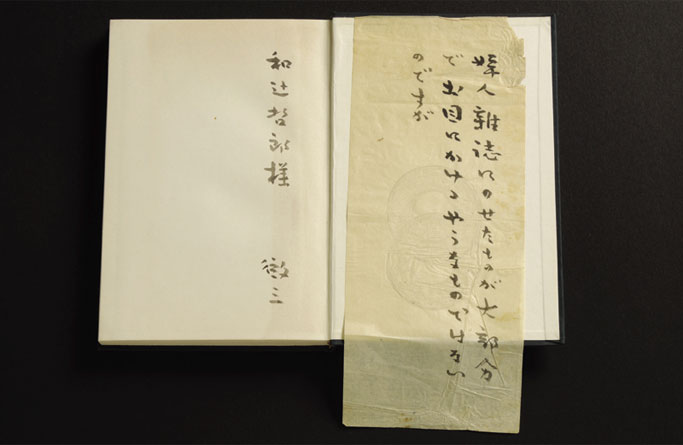 婦人雑誌にのせたものが大部分
で お目にかけるやうなものではない
のですが
和辻哲郎様
徹三